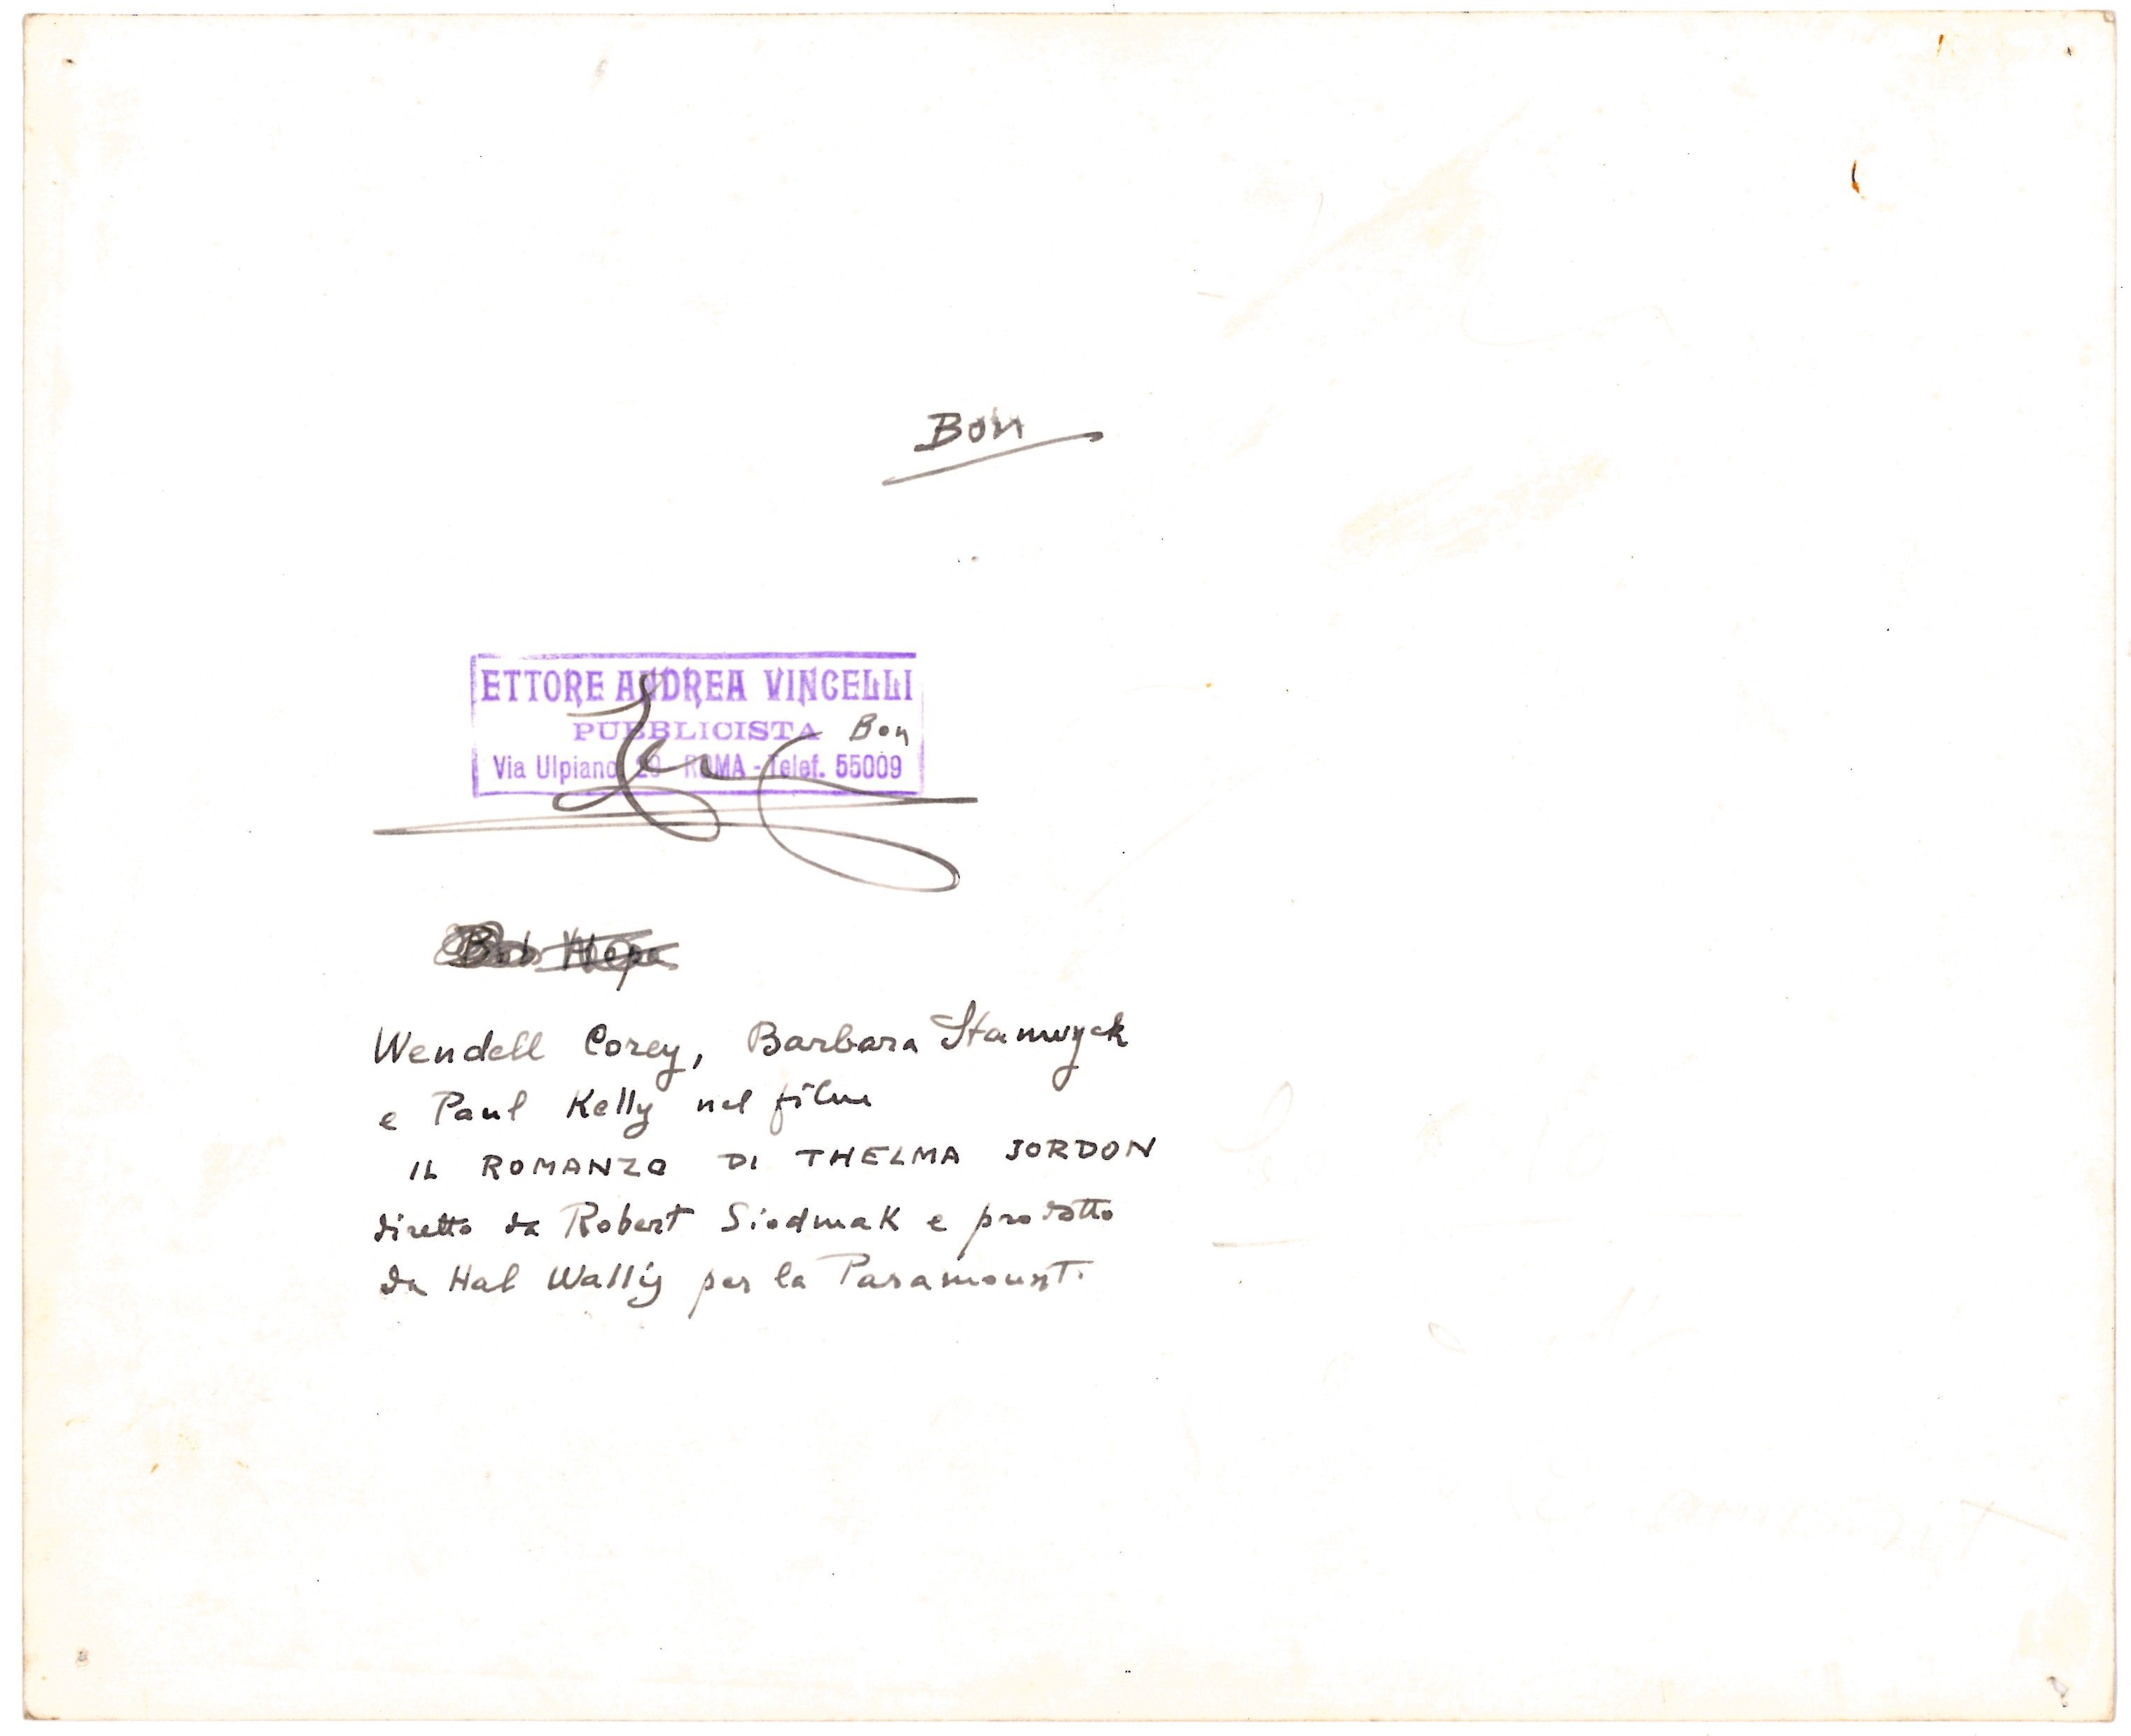 Bon
ETTORE ANDREA VINCELLI
PUBBLICISTA Bon
Via Ulpiano 29 ROMA - Telef. 55009
Bob Hope
Wendell Corey, Barbara Stanwyck
e Paul Kelly nel film
IL ROMANZO DI THELMA JORDON
diretto da Robert Siodmak e prodotto
da Hal Wallis per la Paramount.